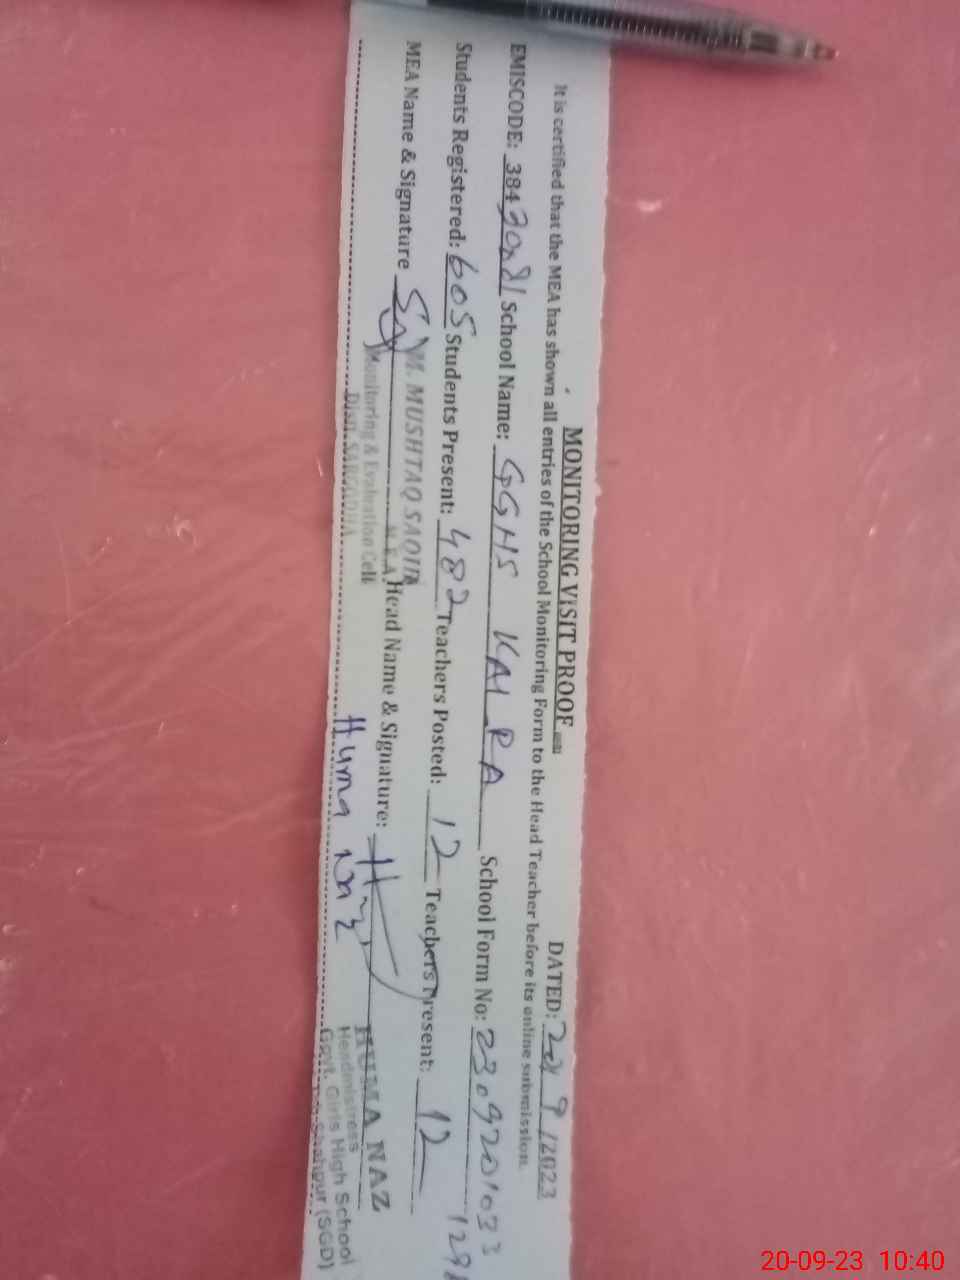 MONITORING VISIT PROOF
DATED: 20/9/2023
It is certified that the MEA has shown all entries of the School Monitoring Form to the Head Teacher before its online submission.
EMISCODE: 38430081 School Name: GGHS KALRA School Form No: 2309201033
Students Registered: 605 Students Present: 482 Teachers Posted: 12 Teachers Present: 12
MEA Name & Signature Head Name & Signature:
M. MUSHTAQ SAQIB
M.E.A
Monitoring & Evaluation Cell
Distt. SARGODHA
Huma Naz
HUMA NAZ
Headmistress
Govt. Girls High School
Shahpur (SGD)
20-09-23 10:40